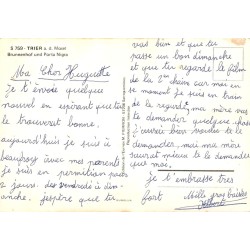 S 759 - TRIER a. d. Mosel
Brunnenhof und Porta Nigra
Ma Cher Huguette
je t'envoie quelque
nouvel en espérant que te
le trouverat bonne.
aujourd'hui je suis à
avec mes parents
je suis en permition pour
2 jours. des vendredis à dim-
anche. j'espere que tu
vas bien et que tu
passe un bon dimanche
et que tu regarde le film
de la 2em chaine car moi en se
moment je suis en train
de les regardé ma mère veus
te demander quelque chose
j'aurai bien voulue te le
demander, mai ma mère
saurat mieux te le demander
que moi.
je t'embrasse tres
fort
Mille gros baises